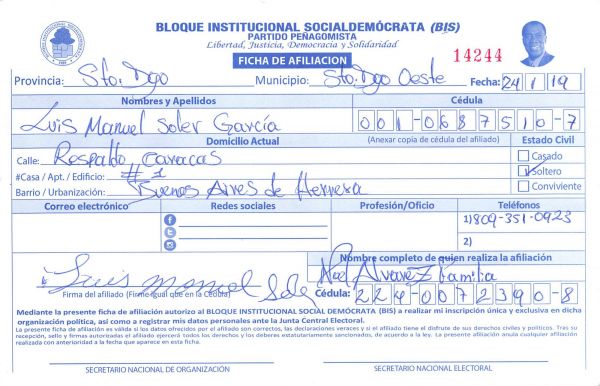 BLOQUE INSTITUCIONAL SOCIALDEMÓCRATA (BIS)
PARTIDO PEÑAGOMISTA
Libertad, Justicia, Democracia y Solidaridad
FICHA DE AFILIACION
14244
Provincia: Sto. Dgo Municipio: Sto. Dgo Oeste Fecha: 24/1/19
Nombres y Apellidos Cédula
Luis Manuel Soler García 001-0687510-7
Domicilio Actual (Anexar copia de cédula del afiliado) Estado Civil
Calle: Respaldo Caracas Casado
#Casa / Apt. / Edificio: #1 Soltero
Barrio / Urbanización: Buenos Aires de Herrera Conviviente
Correo electrónico Redes sociales Profesión/Oficio Teléfonos
1) 809-351-0923
2)
Nombre completo de quien realiza la afiliación
Luis Manuel Sole Alvarez Familia
Firma del afiliado (Firme igual que en la Cédula) Cédula: 224-0072390-8
Mediante la presente ficha de afiliación autorizo al BLOQUE INSTITUCIONAL SOCIAL DEMÓCRATA (BIS) a realizar mi inscripción única y exclusiva en dicha
organización política, así como a registrar mis datos personales ante la Junta Central Electoral.
La presente ficha de afiliación es válida si los datos ofrecidos por el afiliado son correctos, las declaraciones veraces y si el afiliado tiene el disfrute de sus derechos civiles y políticos. Tras su
recepción, sello y firmas autorizadas el afiliado ejercerá todos los derechos y los deberes estatutariamente sancionados, de acuerdo a la ley. La presente afiliación anula cualquier afiliación
realizada con anterioridad a la fecha que aparece en esta ficha.
SECRETARIO NACIONAL DE ORGANIZACIÓN SECRETARIO NACIONAL ELECTORAL